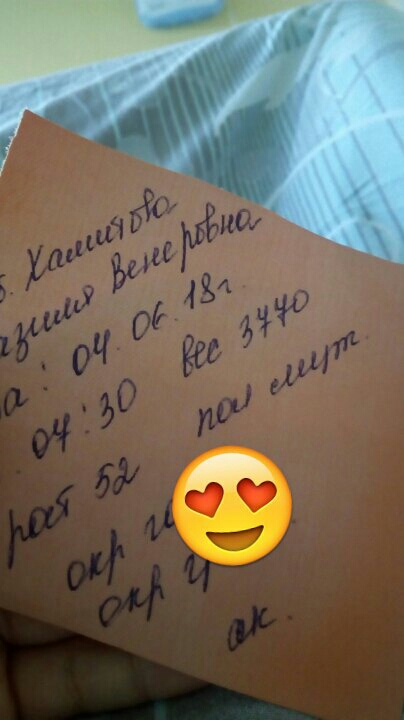 б. Хамитова
азилия Венеровна
а: 04.06.18г.
04:30 вес 3770
рост 52 пол муж.
окр го
окр гр
ак.